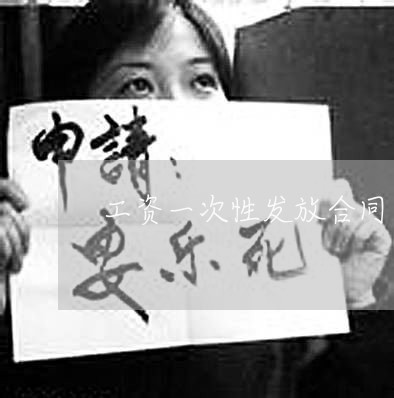 申請：
工资一次性发放合同
要乐死